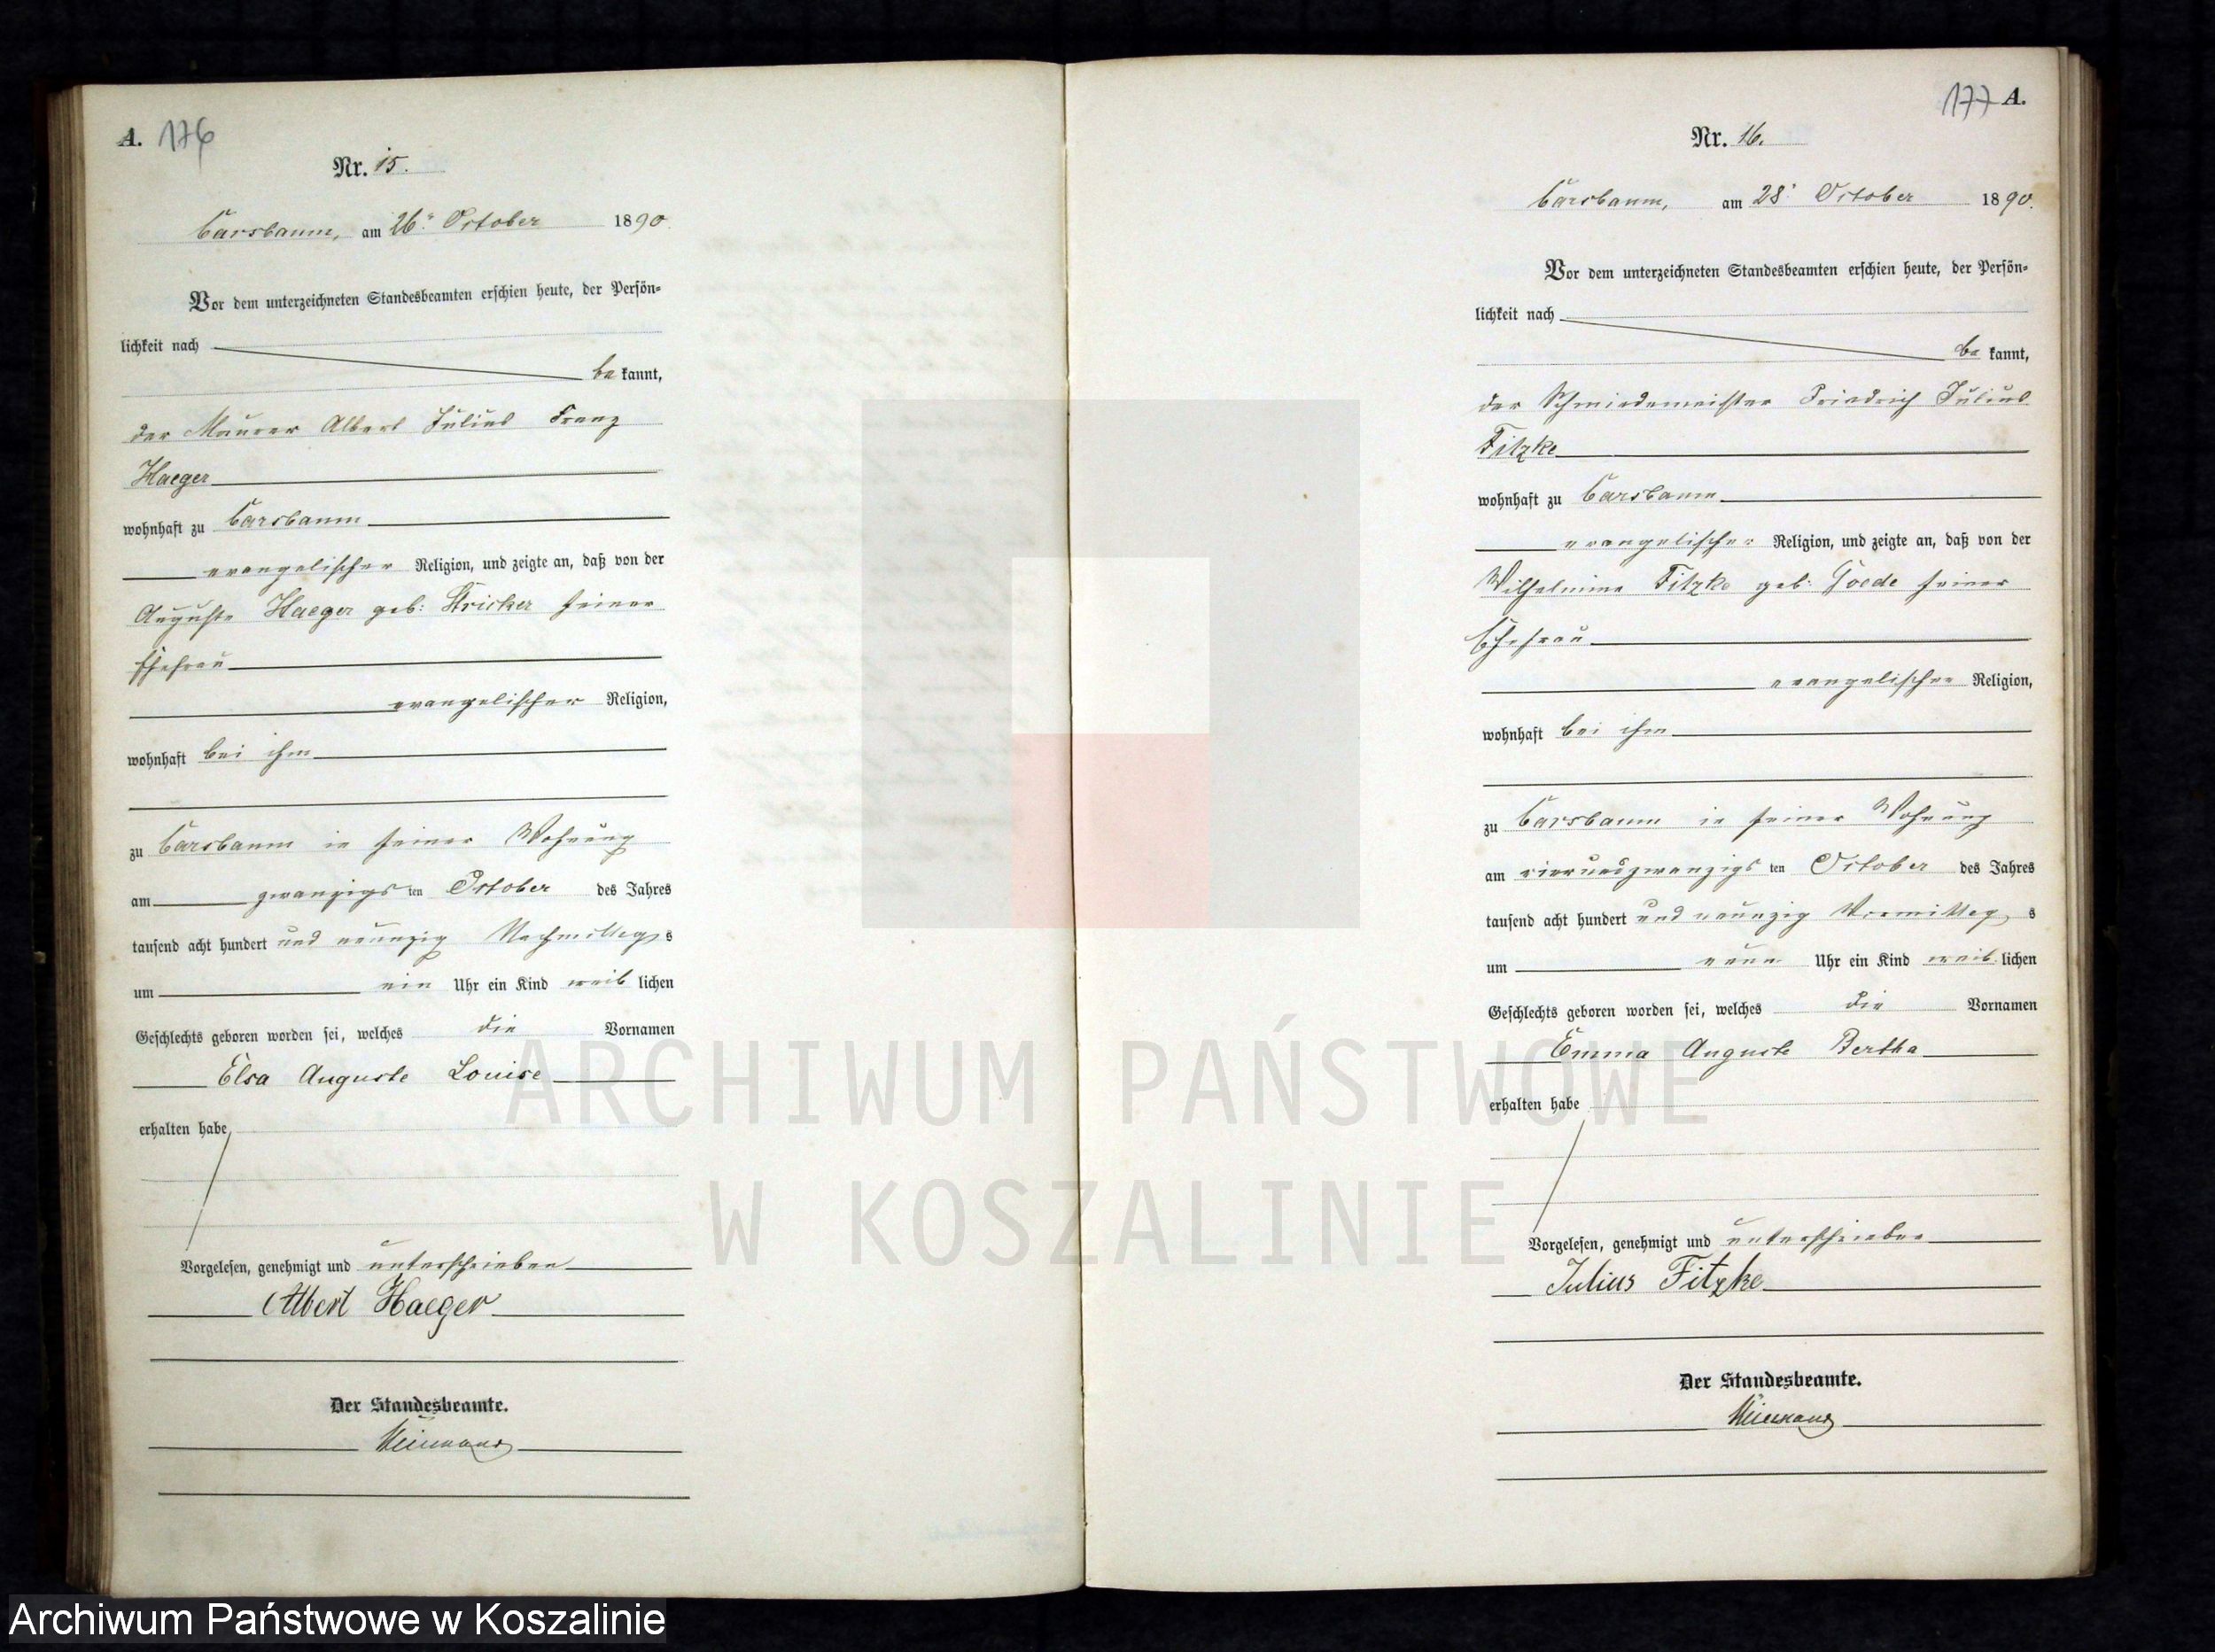 A. 176
Nr. 15.
Carsbaum, am 26. October 1890
Vor dem unterzeichneten Standesbeamten erschien heute, der Persön=
lichkeit nach
be kannt,
der Maurer Albert Julius Franz
Haeger
wohnhaft zu Carsbaum
evangelischer Religion, und zeigte an, daß von der
Auguste Haeger geb: Stricker seiner
Ehefrau
evangelischer Religion,
wohnhaft bei ihm
zu Carsbaum in seiner Wohnung
am zwanzigsten October des Jahres
tausend acht hundert und neunzig Nachmittags
um ein Uhr ein Kind weiblichen
Geschlechts geboren worden sei, welches die Vornamen
Elsa Auguste Louise
erhalten habe
Vorgelesen, genehmigt und unterschrieben
Albert Haeger
Der Standesbeamte.
177 A.
Nr. 16.
Carsbaum, am 28. October 1890.
Vor dem unterzeichneten Standesbeamten erschien heute, der Persön=
lichkeit nach
be kannt,
der Schmiedemeister Friedrich Julius
Fitzke
wohnhaft zu Carsbaum
evangelischer Religion, und zeigte an, daß von der
Wilhelmine Fitzke geb: Goede seiner
Ehefrau
evangelischer Religion,
wohnhaft bei ihm
zu Carsbaum in seiner Wohnung
am vierundzwanzigsten October des Jahres
tausend acht hundert und neunzig Vormittags
um neun Uhr ein Kind weiblichen
Geschlechts geboren worden sei, welches die Vornamen
Emma Auguste Bertha
erhalten habe
Vorgelesen, genehmigt und unterschrieben
Julius Fitzke
Der Standesbeamte.
ARCHIWUM PAŃSTWOWE
W KOSZALINIE
Archiwum Państwowe w Koszalinie